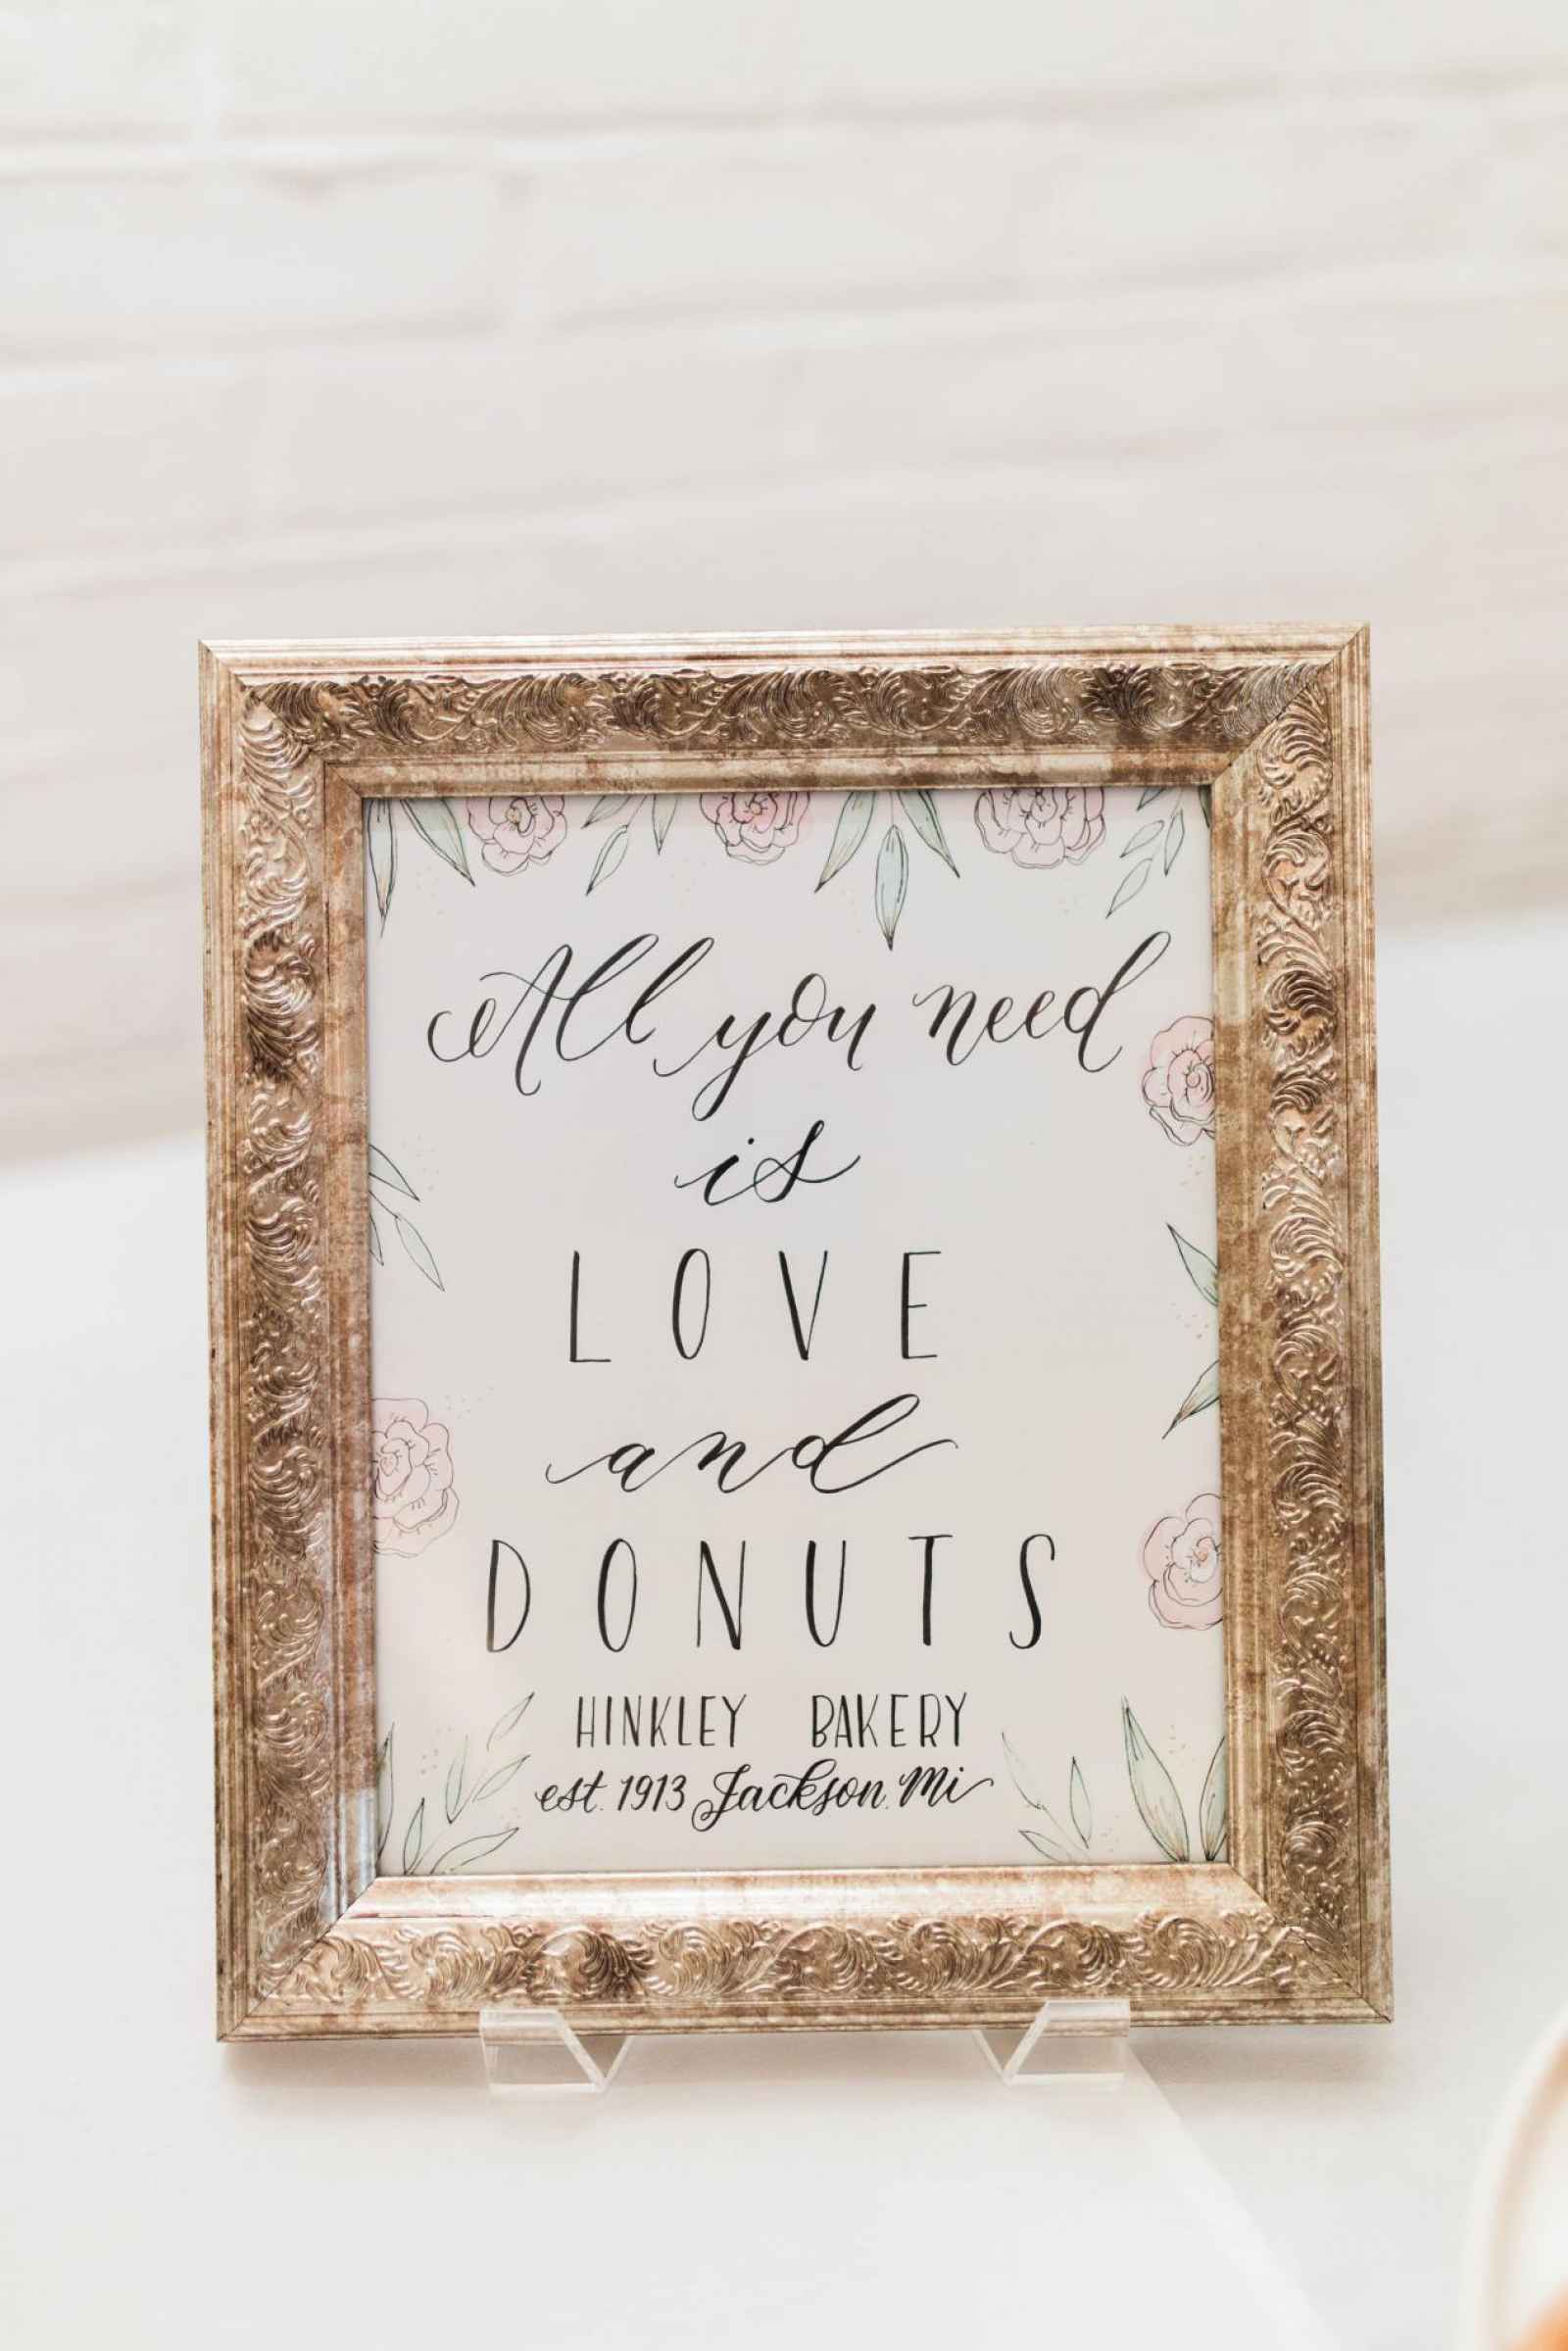 All you need
is
LOVE
and
DONUTS
HINKLEY BAKERY
est. 1913 Jackson. Mi